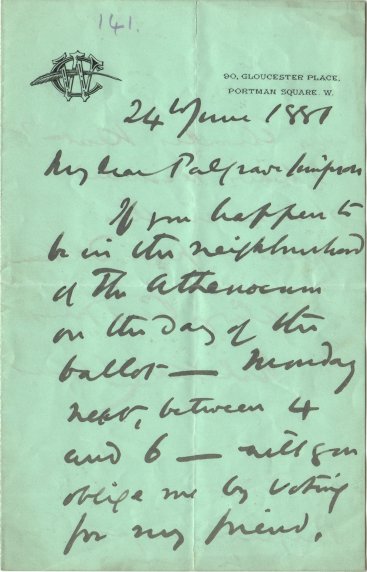 141.
WC
90, GLOUCESTER PLACE,
PORTMAN SQUARE. W.
24th June 1881
My dear Palgrave Simpson
If you happen to
be in the neighbourhood
of The Athenaeum
on the day of the
ballot — Monday
next, between 4
and 6 — will you
oblige me by voting
for my friend,